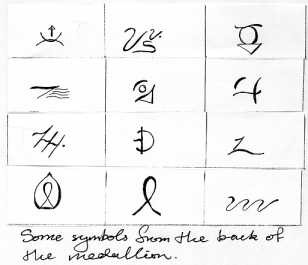 Some symbols from the back of
the medallion.